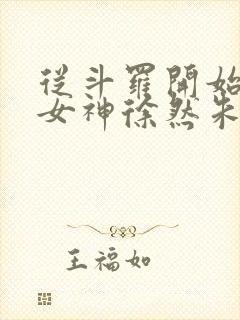 從斗羅開始
女神徐然朱
王福如